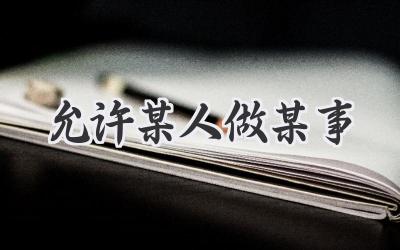 允许某人做某事